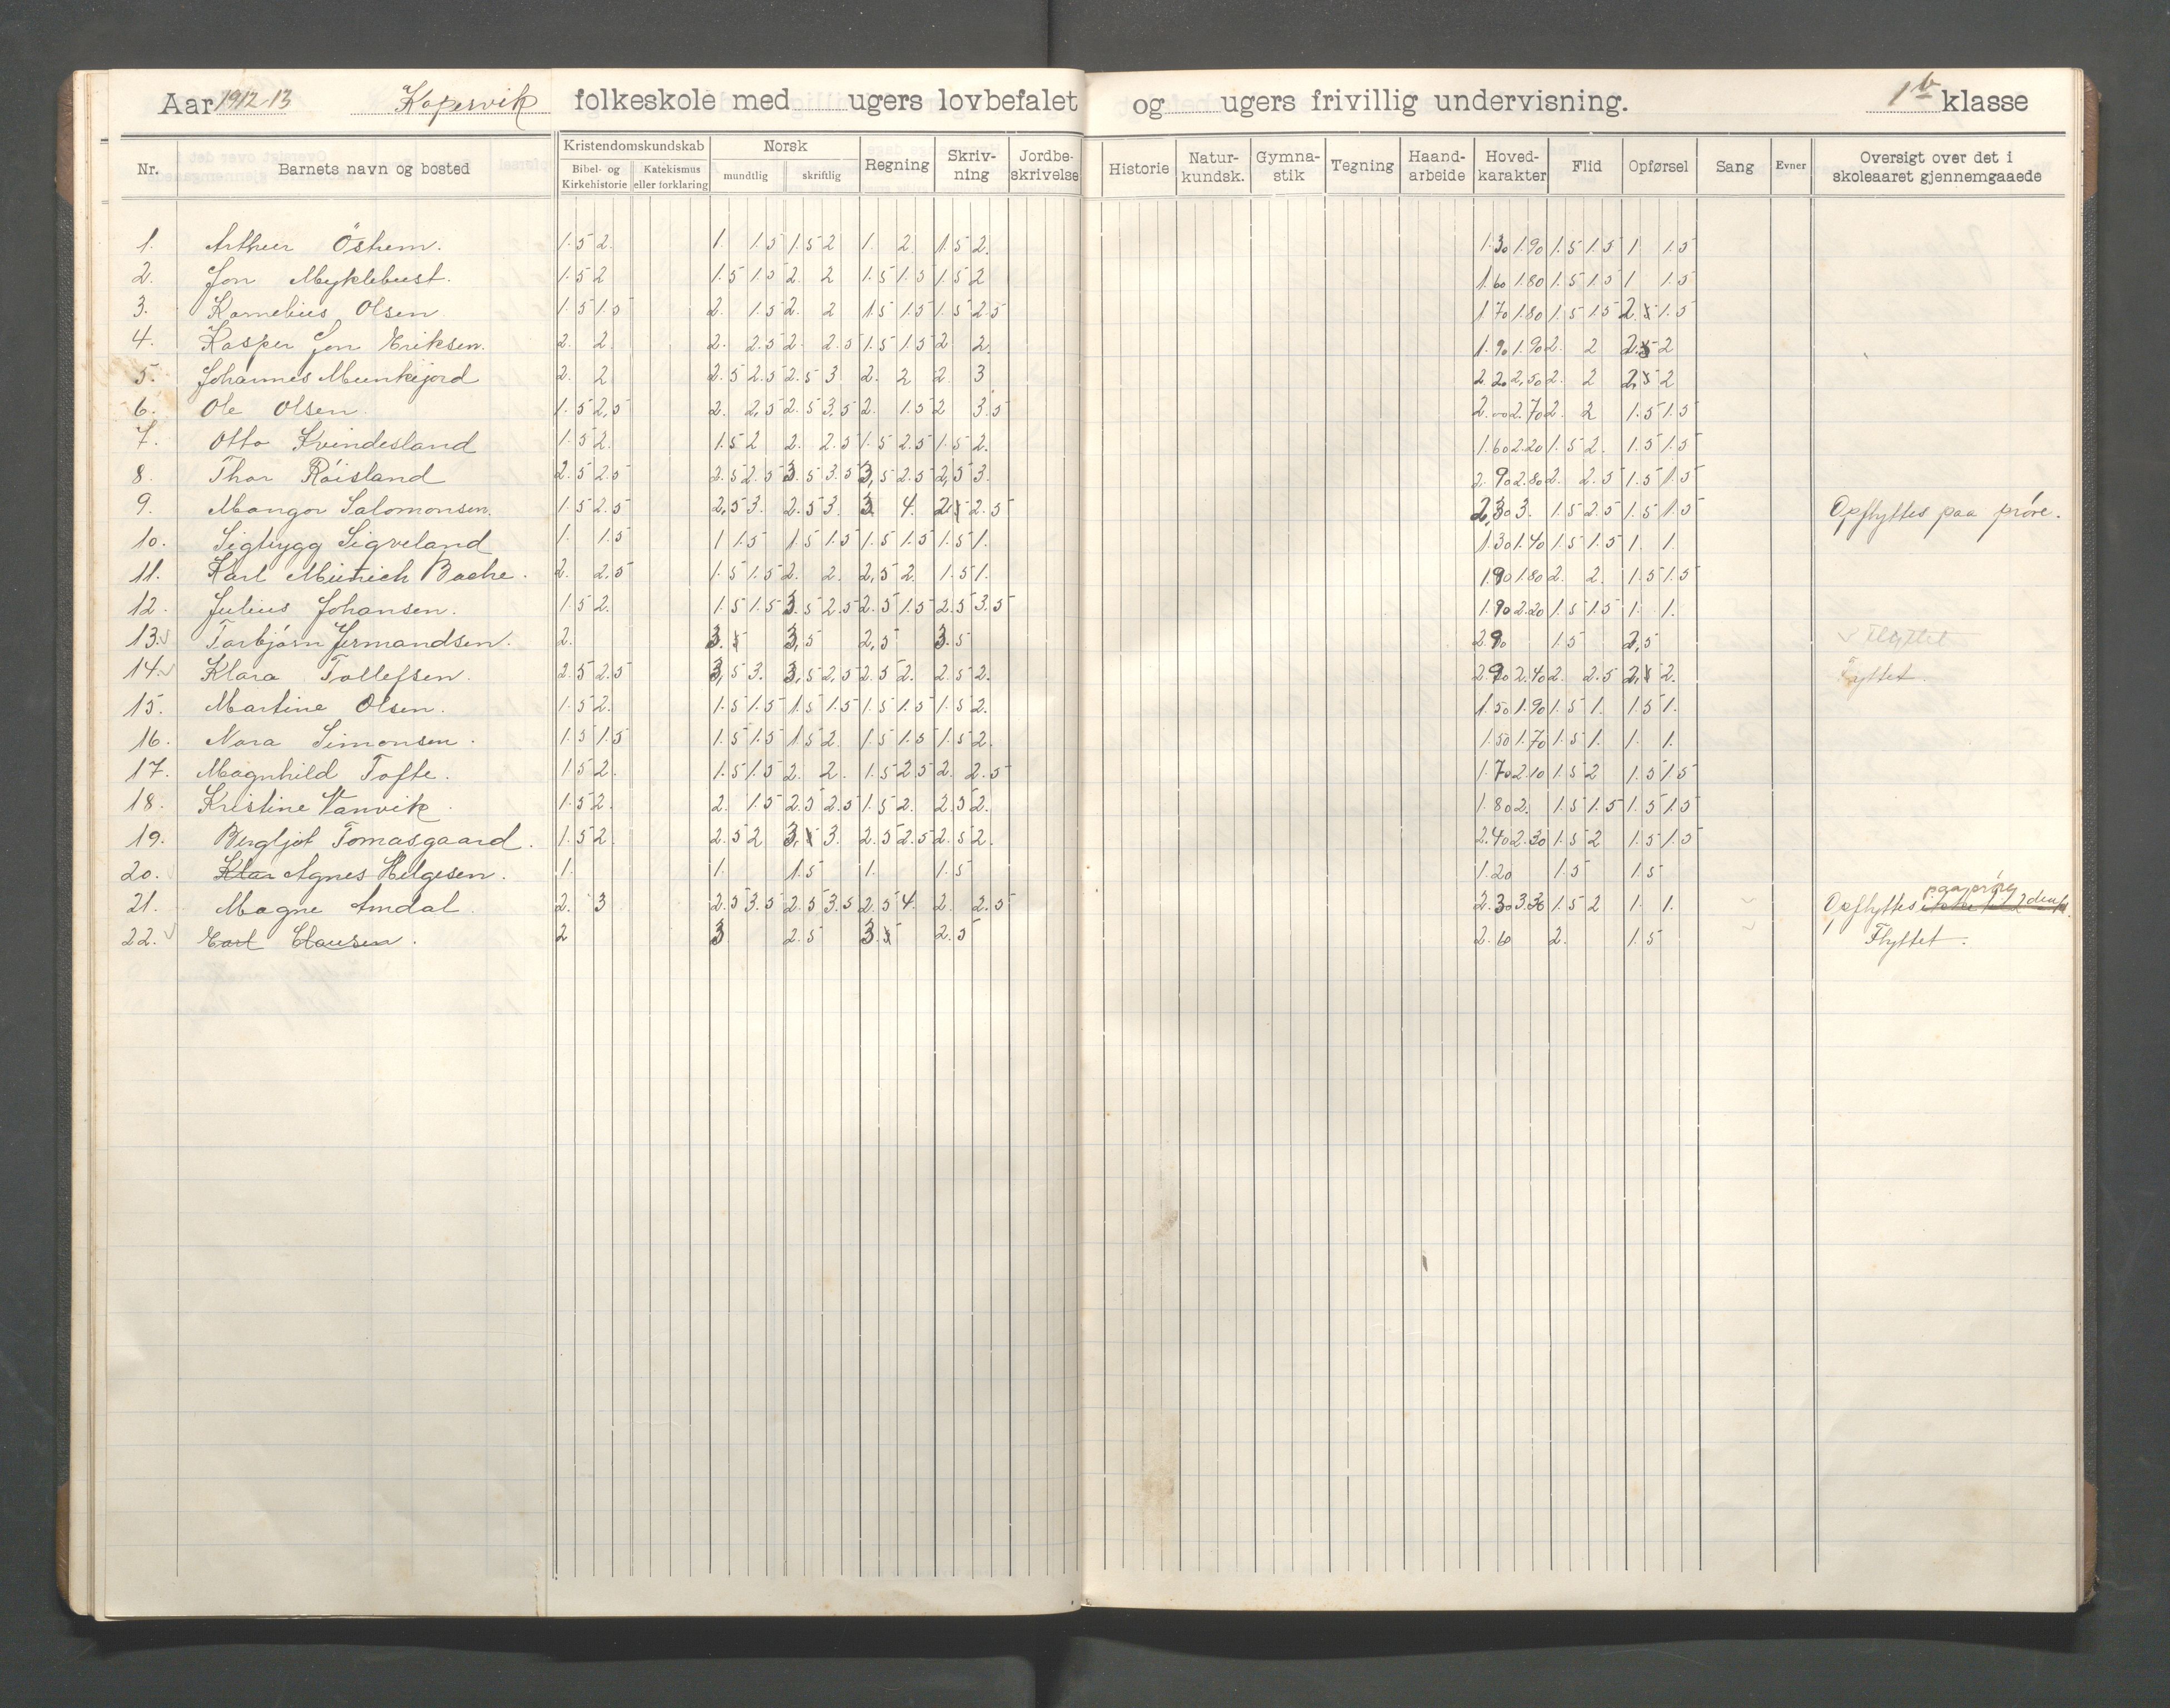 Aar 1912-13 Kopervik folkeskole med ugers lovbefalet og ugers frivillig undervisning. 1b klasse
Nr. Barnets navn og bosted Kristendomskundskab Bibel- og Kirkehistorie Katekismus eller forklaring Norsk mundtlig skriftlig Regning Skriv-ning Jordbe-skrivelse Historie Natur-kundsk. Gymna-stik Tegning Haand-arbeide Hoved-karakter Flid Opførsel Sang Evner Oversigt over det i skoleaaret gjennemgaaede
1. Arthur Östhem. 1.5 2. 1. 1.5 1.5 2 1. 2. 1.5 2. 1.30 1.90 1.5 1.5 1 1.5
2. Jon Myklebust. 1.5 2 1.5 1.5 2. 2 1.5 1.5 1.5 2 1.60 1.80 1.5 1.5 1 1.5
3. Kornelius Olsen 1.5 1.5 2. 1.5 2. 2 1.5 1.5 1.5 2.5 1.70 1.80 1.5 1.5 2. 1.5
4. Kasper Jon Eriksen. 2. 2. 2. 2.5 2. 2.5 1.5 1.5 2. 2. 1.90 1.90 2. 2 2.5 2
5. Johannes Munkejord 2. 2 2.5 2.5 2.5 3 2. 2 2. 3. 2.20 2.50 2. 2 2.5 2
6. Ole Olsen. 1.5 2,5 2. 2,5 2.5 3.5 2. 1.5 2 3.5 2.00 2.70 2. 2 1.5 1.5
7. Otto Kvindesland 1.5 2. 1.5 2 2. 2.5 1.5 2.5 1.5 2. 1.60 2.20 1.5 2. 1.5 1.5
8. Thor Röisland 2.5 2.5 2.5 2.5 3.5 3.5 3,5 2.5 2,5 3. 2.90 2.80 2. 2.5 1.5 1.5
9. Mangor Salomonsen. 1.5 2.5 2,5 3. 2.5 3. 3. 4. 2. 2.5 2,30 3. 1.5 2.5 1.5 1.5 Opflyttes paa pröve.
10. Sigtrygg Sigveland 1. 1.5 1 1.5 1.5 1.5 1.5 1.5 1.5 1. 1.30 1.40 1.5 1.5 1. 1.
11. Karl Bache. 2. 2,5 1.5 1.5 2. 2. 2,5 2. 1.5 1. 1.90 1.80 2. 2. 1.5 1.5
12. Julius Johansen. 1.5 2. 1.5 1.5 3.5 2.5 2.5 1.5 2.5 3.5 1.90 2.20 1.5 1.5 1. 1.
13. Torbjörn Jermandsen. 2. 3. 3,5 2,5 3.5 2.90 1.5 2,5 Flyttet
14. Klara Tollefsen. 2.5 2.5 3,5 3. 3,5 2,5 2.5 2. 2.5 2. 2.90 2.40 2. 2.5 2, 2. Flyttet.
15. Martine Olsen. 1.5 2. 1.5 1.5 1.5 1.5 1.5 1.5 1.5 2. 1.50 1.90 1.5 1. 1.5 1.
16. Nora Simonsen. 1.5 1.5 1.5 1.5 1.5 2. 1.5 1.5 1.5 2. 1.50 1.70 1.5 1. 1. 1.
17. Magnhild Tofte. 1.5 2. 1.5 1.5 2. 2. 1.5 2.5 2. 2.5 1.70 2.10 1.5 2 1.5 1.5
18. Kristine Vanvik. 1.5 2. 2. 1.5 2.5 2.5 1.5 2. 2.5 2. 1.80 2. 1.5 1.5 1.5 1.5
19. Bergljot Tomasgaard. 1.5 2. 2.5 2 3. 3. 2.5 2.5 2.5 2. 2.40 2.30 1.5 2 1.5 1.5
20. Klar Agnes Helgesen. 1. 1. 1.5 1. 1.5 1.20 1.5 1.5
21. Magne Amdal. 2. 3 2.5 3.5 2.5 3.5 2.5 4. 2. 2.5 2.30 3.30 1.5 2 1. 1. Opflyttes paa pröve
22. Carl Clausen. 2 3 2.5 3. 2.5 2.60 2. 1.5 Flyttet.